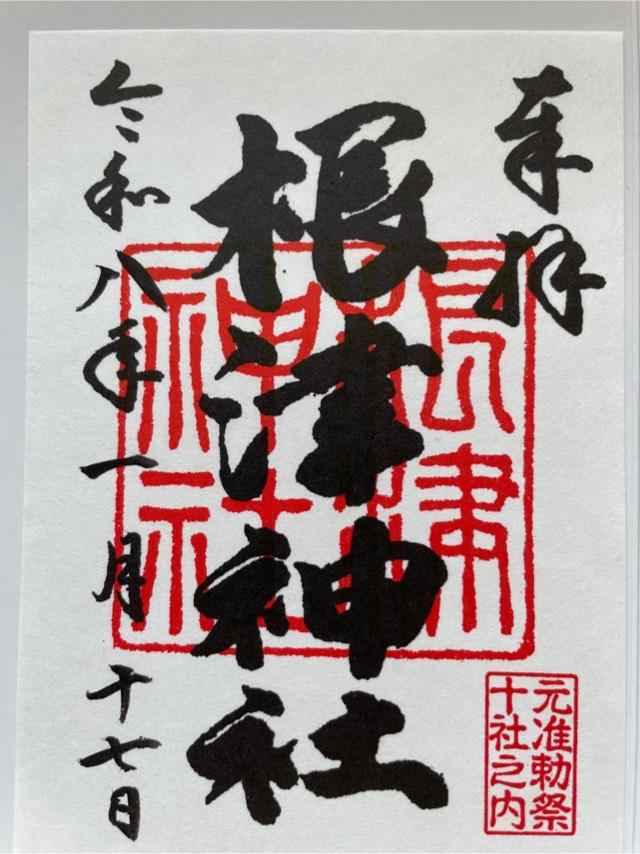 奉拝
根津神社
根津神社
元准勅祭
十社之内
令和八年一月十七日